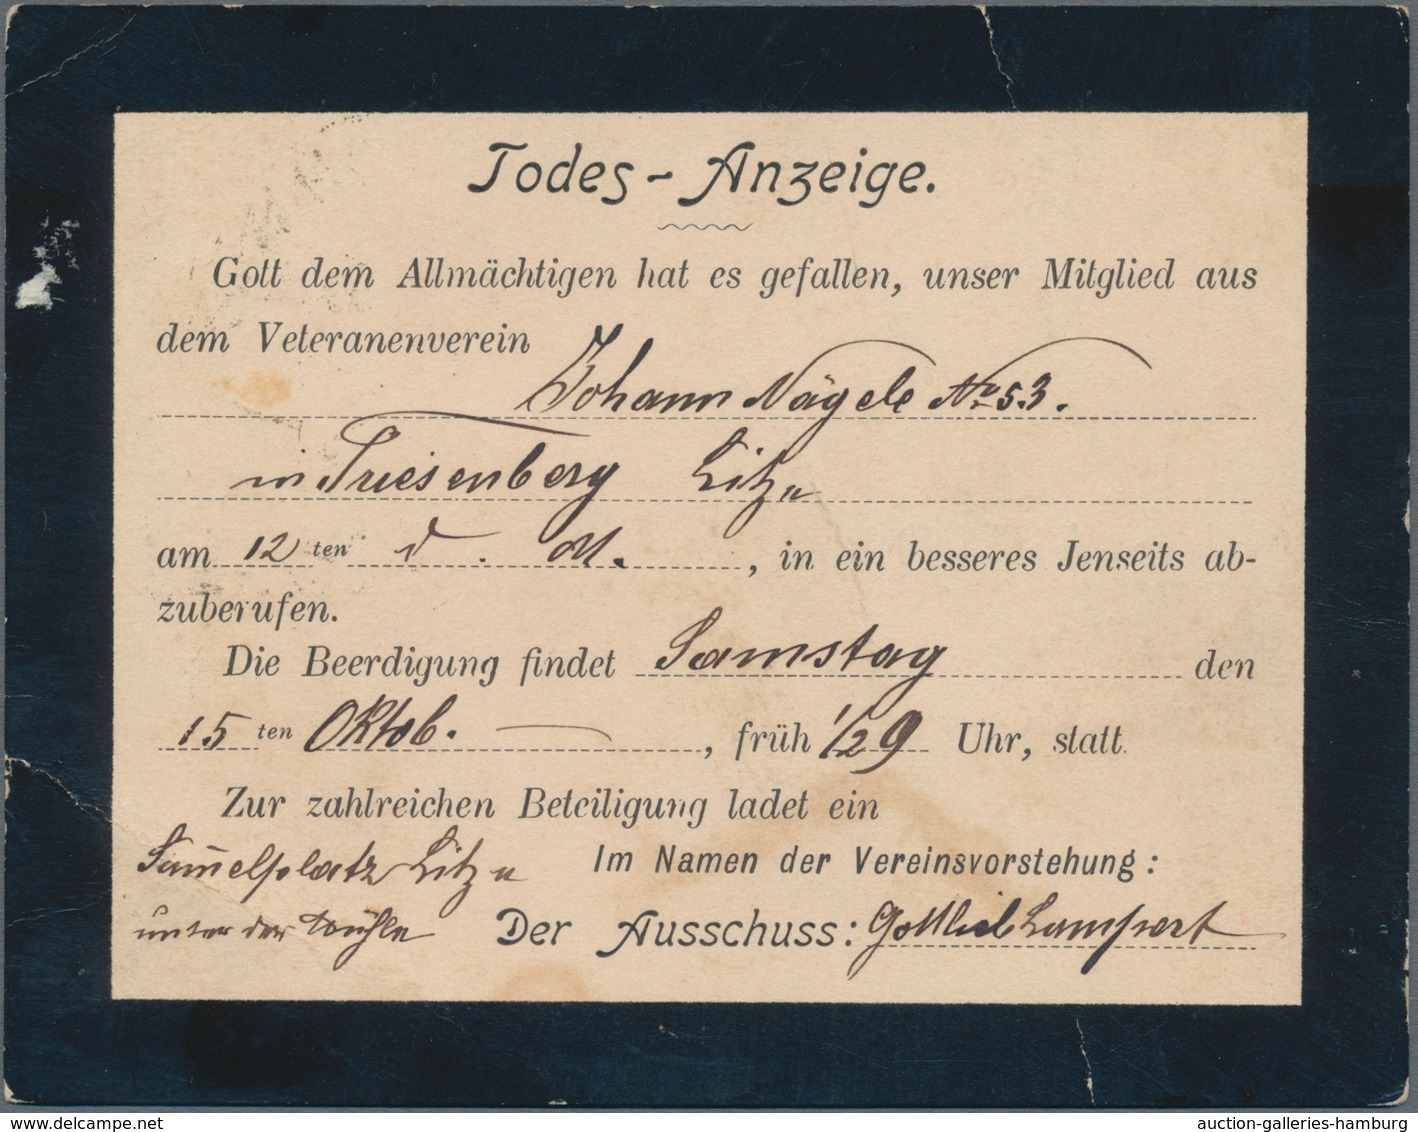 Todes-Anzeige.
Gott dem Allmächtigen hat es gefallen, unser Mitglied aus
dem Veteranenverein
Johann Nägele No 53.
in Triesenberg Litze
am 12 ten d. M., in ein besseres Jenseits ab-
zuberufen.
Die Beerdigung findet Samstag den
15 ten Oktob. , früh 1/2 9 Uhr, statt.
Zur zahlreichen Beteiligung ladet ein
Sam̄elplatz Litze
Im Namen der Vereinsvorstehung:
unter der Mühle
Der Ausschuss: Gottlieb Lampert
auction-galleries-hamburg
www.delcampe.net
auction-galleries-hamburg